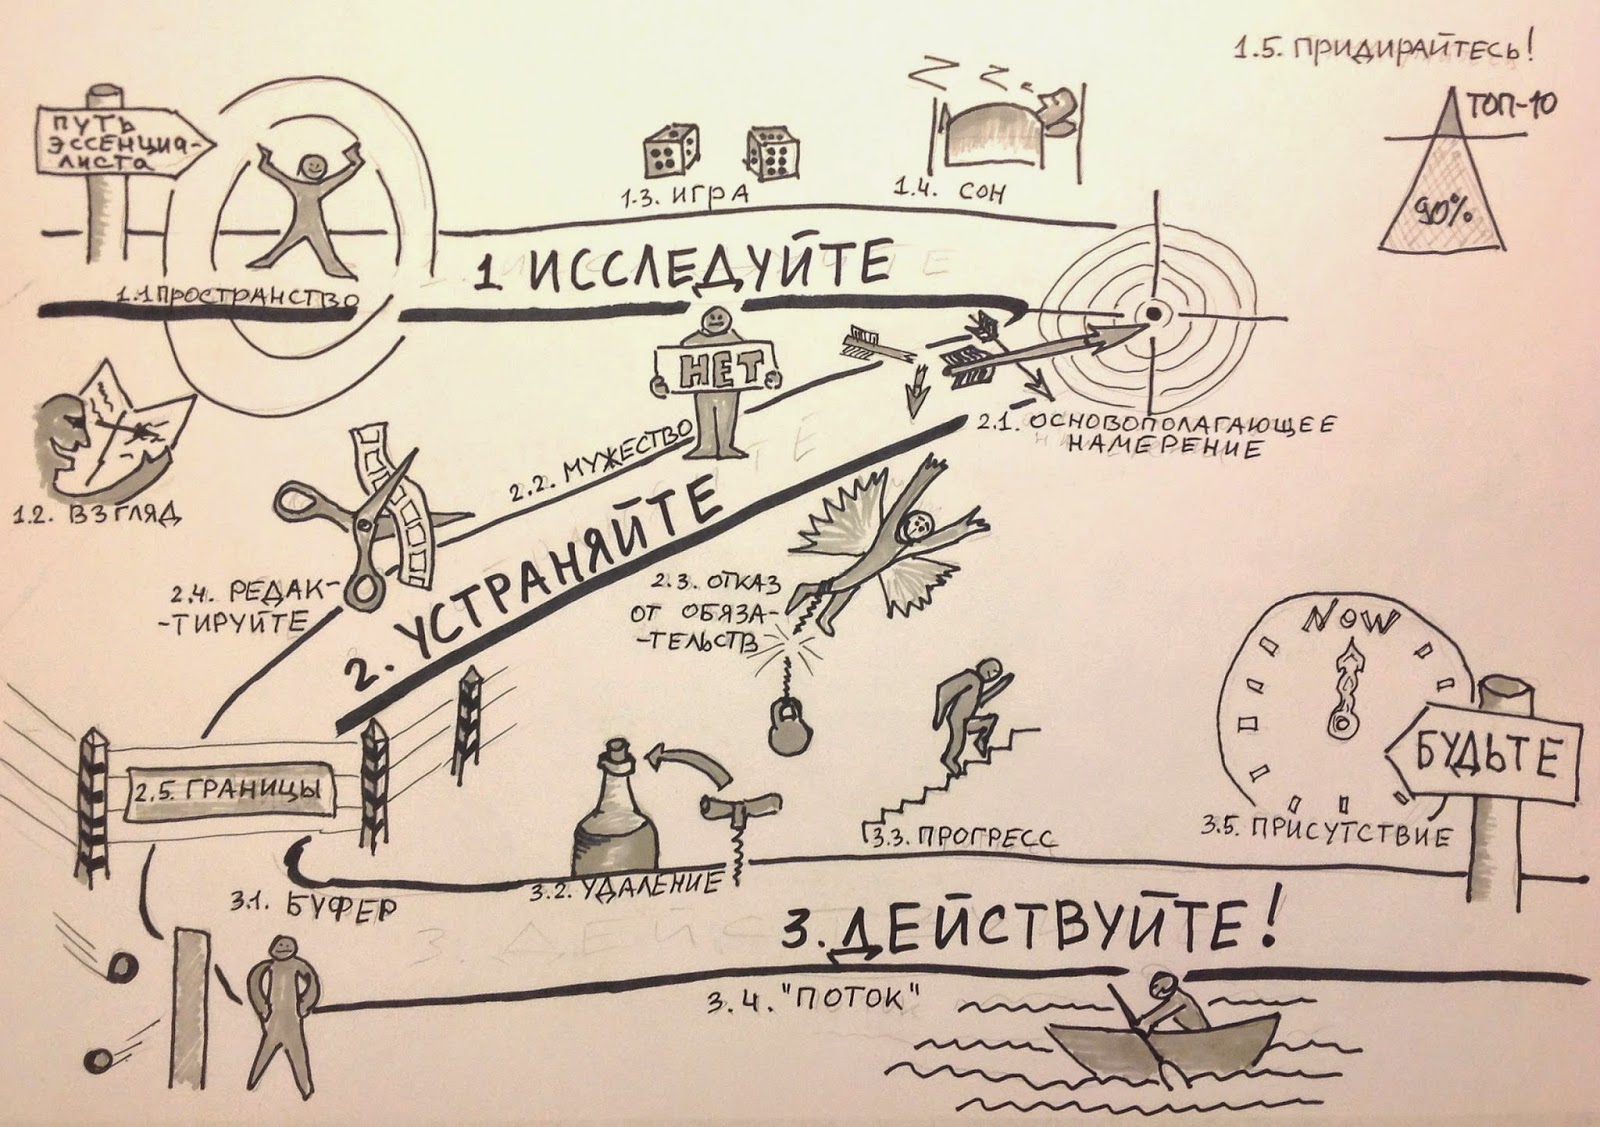 ПУТЬ
ЭССЕНЦИА-
ЛИСТА
1.1 ПРОСТРАНСТВО
1.2. ВЗГЛЯД
1.3. ИГРА
1.4. СОН
Z Z..
1.5. ПРИДИРАЙТЕСЬ!
ТОП-10
90%
1 ИССЛЕДУЙТЕ
НЕТ
2.1. ОСНОВОПОЛАГАЮЩЕЕ
НАМЕРЕНИЕ
2.2. МУЖЕСТВО
2. УСТРАНЯЙТЕ
2.3. ОТКАЗ
ОТ ОБЯЗА-
-ТЕЛЬСТВ
2.4. РЕДАК-
-ТИРУЙТЕ
2.5. ГРАНИЦЫ
3.1. БУФЕР
3.2. УДАЛЕНИЕ
3.3. ПРОГРЕСС
NOW
БУДЬТЕ
3.5. ПРИСУТСТВИЕ
3. ДЕЙСТВУЙТЕ!
3.4. "ПОТОК"